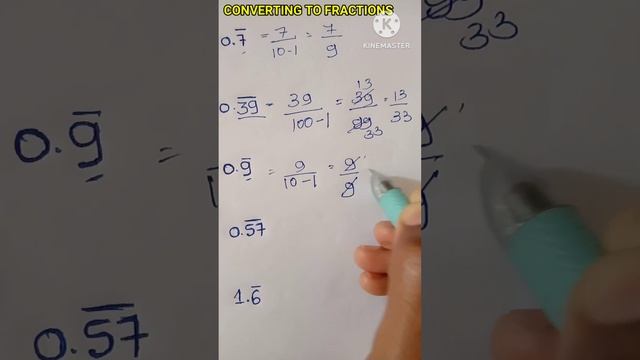 CONVERTING TO FRACTIONS
KINEMASTER
0.7̅ = 7/(10-1) = 7/9
0.3̅9̅ = 39/(100-1) = 39/99 13/33 = 13/33
0.9̅ = 9/(10-1) = 9/9 1
0.5̅7̅
1.6̅
33
0.9̅ =
0.5̅7̅